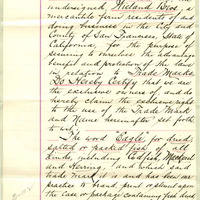 undersigned, Wieland Bros, a
mercantile firm residents of and
doing business in the City and
County of San Francisco, State of
California, for the purpose of
securing to ourselves the advantage
benefit and protection of the laws
in relation to Trade Marks
Do Hereby Certify that we
the exclusive use of, and do
hereby claim the exclusive right
to the use of the Trade Mark
and Name hereinafter set forth
to wit;
The word "Eagle" for dried
salted or packed fish of all
kinds, including Codfish, Mackerel
and Herring, and which said
trade mark it is and has been our
practice to brand print or stencil upon
the case or package containing fish dried